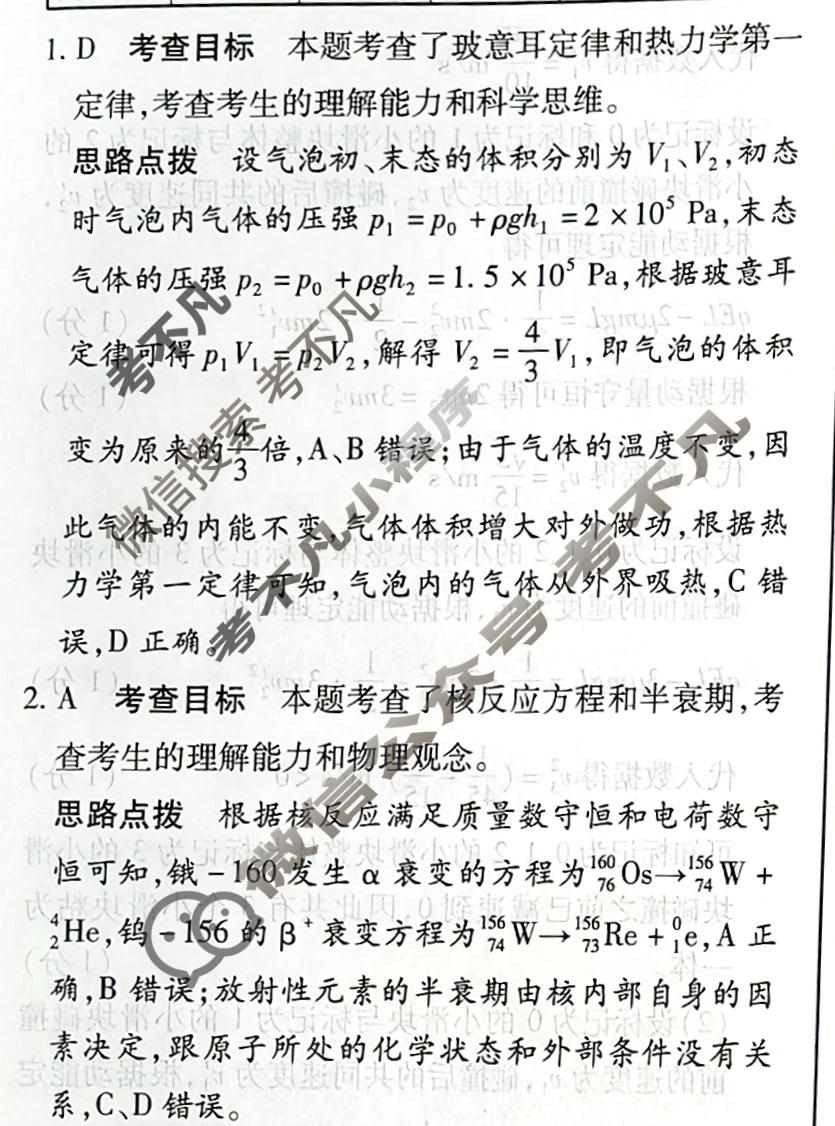 1. D 考查目标 本题考查了玻意耳定律和热力学第一
定律,考查考生的理解能力和科学思维。
思路点拨 设气泡初、末态的体积分别为 V₁、V₂,初态
时气泡内气体的压强 p₁ = p₀ + ρgh₁ = 2 × 10⁵ Pa,末态
气体的压强 p₂ = p₀ + ρgh₂ = 1.5 × 10⁵ Pa,根据玻意耳
定律可得 p₁V₁ = p₂V₂,解得 V₂ = 4/3 V₁,即气泡的体积
变为原来的 4/3 倍,A、B 错误;由于气体的温度不变,因
此气体的内能不变,气体体积增大对外做功,根据热
力学第一定律可知,气泡内的气体从外界吸热,C 错
误,D 正确。
2. A 考查目标 本题考查了核反应方程和半衰期,考
查考生的理解能力和物理观念。
思路点拨 根据核反应满足质量数守恒和电荷数守
恒可知,锇-160 发生 α 衰变的方程为 ¹⁶⁰₇₆Os→¹⁵⁶₇₄W +
⁴₂He,钨-156 的 β⁺ 衰变方程为 ¹⁵⁶₇₄W→¹⁵⁶₇₃Re + ⁰₁e,A 正
确,B 错误;放射性元素的半衰期由核内部自身的因
素决定,跟原子所处的化学状态和外部条件没有关
系,C、D 错误。
考不凡
微信搜索 考不凡
考不凡小程序
微信公众号 考不凡